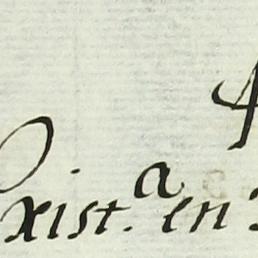 Exist.ª en